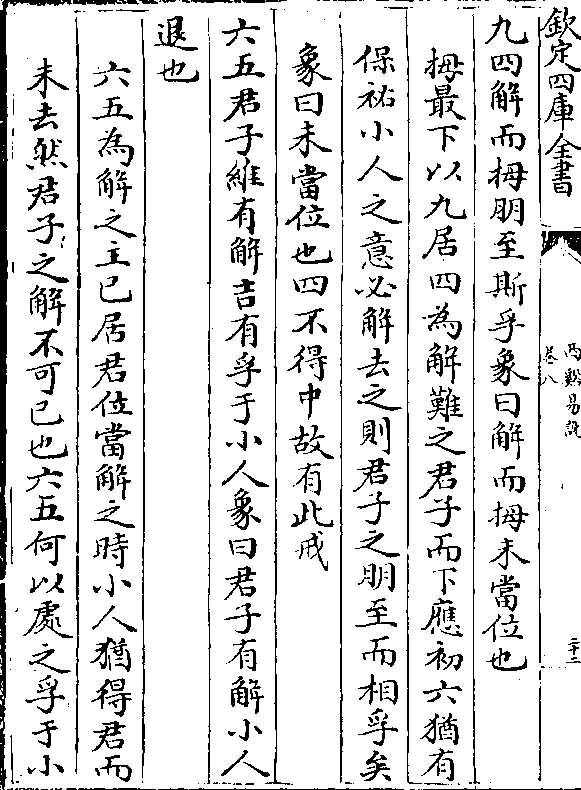 欽定四庫全書
西谿易說
卷八
二十二
九四解而拇朋至斯孚象曰解而拇未當位也
拇最下以九居四為解難之君子而下應初六猶有
保祐小人之意必解去之則君子之朋至而相孚矣
象曰未當位也四不得中故有此戒
六五君子維有解吉有孚于小人象曰君子有解小人
退也
六五為解之主已居君位當解之時小人猶得君而
未去然君子之解不可已也六五何以處之孚于小